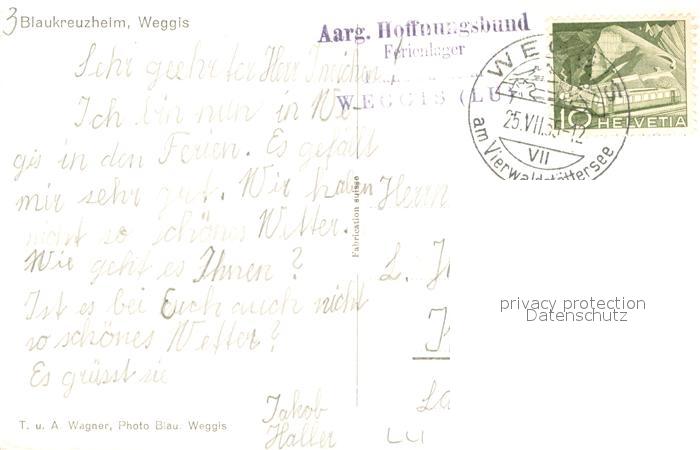 3
Blaukreuzheim, Weggis
Aarg. Hoffnungsbund
Ferienlager
WEGGIS (LU)
WEGGIS
25.VII.
-12
VII
am Vierwaldstättersee
10 HELVETIA
Sehr geehrter Herr
Ich bin nun in We-
gis in den Ferien. Es gefällt
mir sehr gut. Wir haben
nicht so schönes Wetter.
Wie geht es Ihnen?
Ist es bei Euch auch nicht
so schönes Wetter?
Es grüsst sie
Jakob
Haller
Fabrication suisse
Herrn
L.
LU
T. u. A. Wagner, Photo Blau. Weggis
privacy protection
Datenschutz